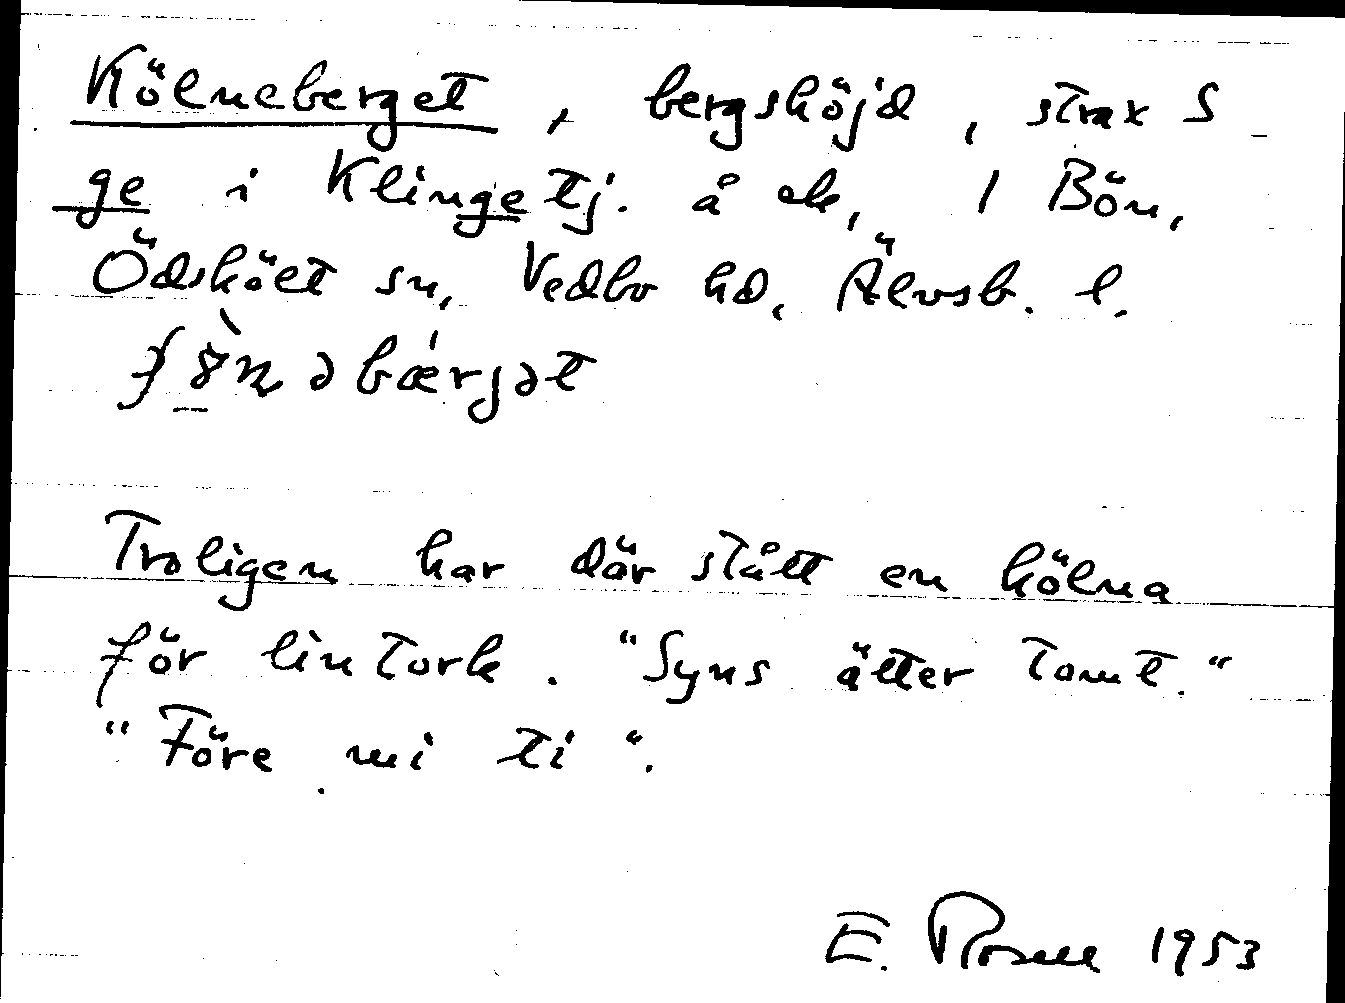 Kölneberget, bergshöjd, strax S
ge i Klingetj. å ek, 1 Bön,
Ödsköldt sn, Vedbo hd, Älvsb. l.
bærjət
Troligen har där stått en kölna
för lintork. "Syns ätter tomt."
"Före mi ti".
E. Rosell 1953